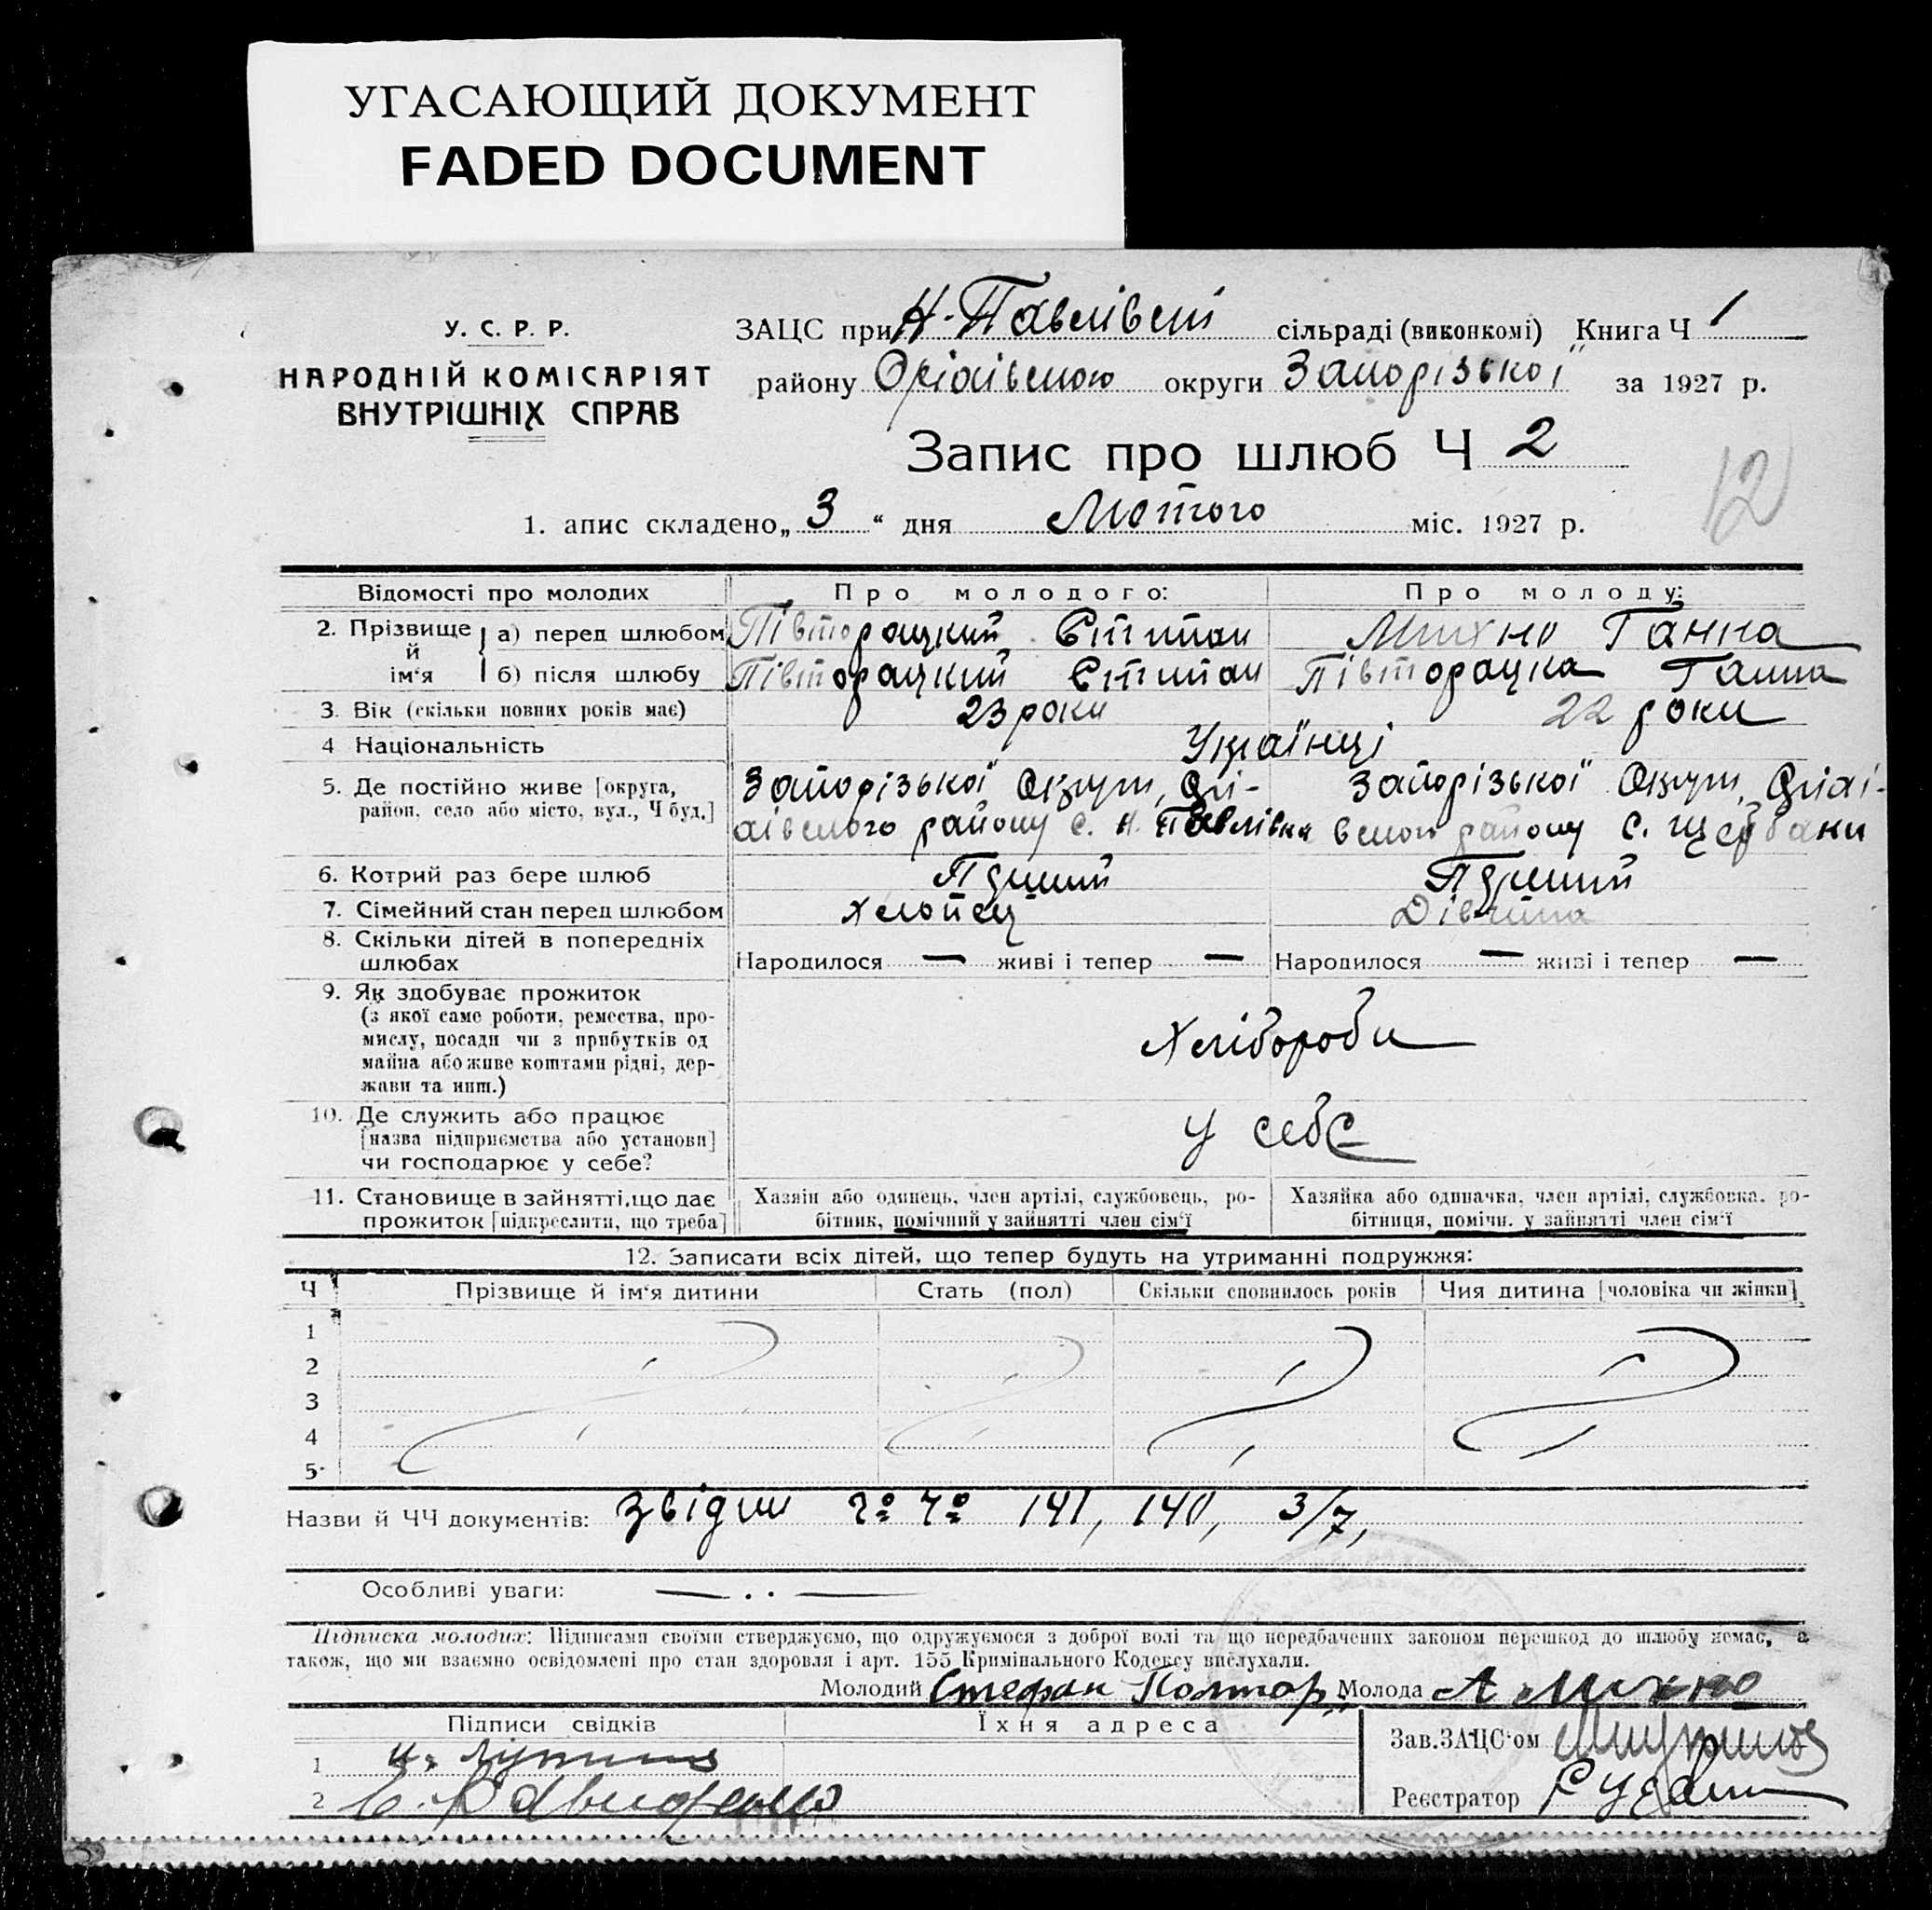 УГАСАЮЩИЙ ДОКУМЕНТ
FADED DOCUMENT
У. С. Р. Р.
НАРОДНІЙ КОМІСАРІЯТ
ВНУТРІШНІХ СПРАВ
ЗАЦС при Н-Павлівській сільраді (виконкомі) Книга Ч 1
району Оріхівського округи Запорізької за 1927 р.
Запис про шлюб Ч 2
12
1. апис складено „ 3 “ дня Лютого міс. 1927 р.
Відомості про молодих Про молодого: Про молоду:
2. Прізвище й ім‘я а) перед шлюбом Півторацкий Степан Михно Ганна
б) після шлюбу Півторацкий Степан Півторацка Ганна
3. Вік (скільки повних років має) 23 роки 22 роки
4 Національність Українці
5. Де постійно живе [округа, район, село або місто, вул., Ч буд.]
Запорізької Округи, Орі-
хівського району с. Н. Павлівка
Запорізької Округи, Оріхі-
вського району с. Щербаки
6. Котрий раз бере шлюб Перший Перший
7. Сімейний стан перед шлюбом Хлопець Дівчина
8. Скільки дітей в попередніх шлюбах Народилося — живі і тепер — Народилося — живі і тепер —
9. Як здобуває прожиток
(з якої саме роботи, ремества, про-
мислу, посади чи з прибутків од
майна або живе коштами рідні, дер-
жави та инш.)
Хлібороби
10. Де служить або працює
[назва підприємства або установи]
чи господарює у себе?
у себе
11. Становище в зайнятті, що дає
прожиток [підкреслити, що треба]
Хазяїн або одинець, член артілі, службовець, ро-
бітник, помічний у зайнятті член сім‘ї
Хазяйка або одиначка, член артілі, службовка, ро-
бітниця, помічн. у зайнятті член сім‘ї
12. Записати всіх дітей, що тепер будуть на утриманні подружжя:
Ч Прізвище й ім‘я дитини Стать (пол) Скільки сповнилось років Чия дитина [чоловіка чи жінки]
1
2
3
4
5
Назви й ЧЧ документів: 141, 140, 3/7,
Особливі уваги: — . . —
Підписка молодих: Підписами своїми стверджуємо, що одружуємося з доброї волі та що передбачених законом перешкод до шлюбу немає, а
також, що ми взаємно освідомлені про стан здоровля і арт. 155 Кримінального Кодексу вислухали.
Молодий Стефан Молода А Михно
Підписи свідків Їхня адреса
1
2
Зав. ЗАЦС‘ом
Реєстратор